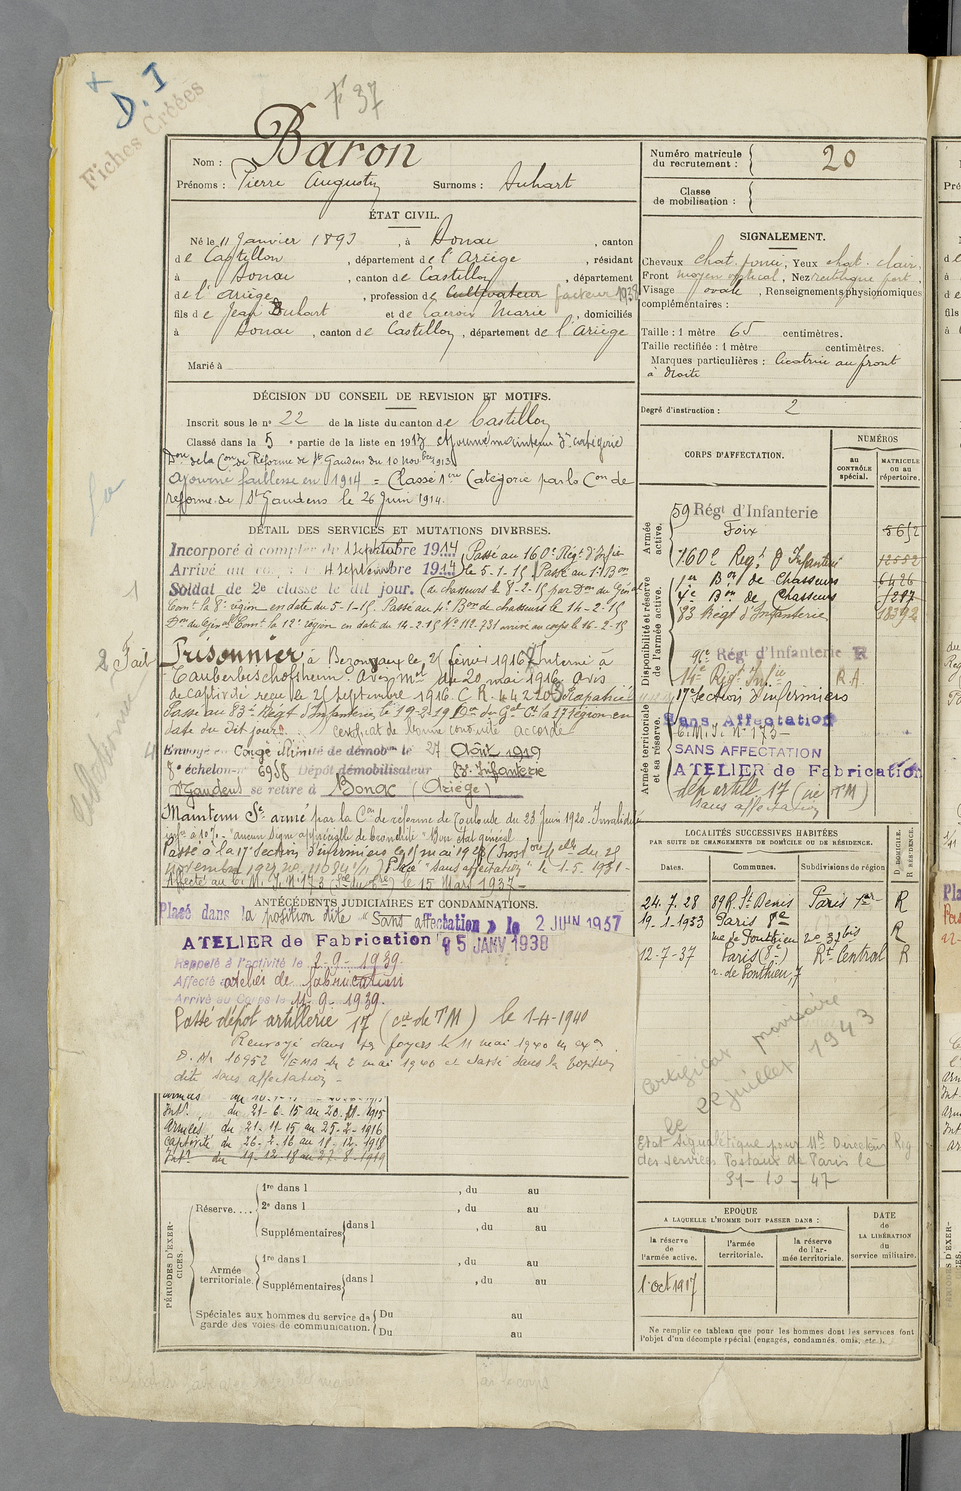 D. I
Fiches Créées
F 37
Nom : Baron
Prénoms : Pierre Augustin Surnoms : Suhart
Numéro matricule du recrutement : 20
Classe de mobilisation :
ÉTAT CIVIL.
Né le 11 Janvier 1893, à Bonac, canton
de Castillon, département de l'Ariège, résidant
à Bonac, canton de Castillon, département
de l'Ariège, profession de Cultivateur facteur 1938
fils de Jean Buhart et de Lacroix Marie, domiciliés
à Bonac, canton de Castillon, département de l'Ariège
Marié à
SIGNALEMENT.
Cheveux chat. foncé, Yeux chat. clair,
Front moyen vertical, Nez rectiligne fort,
Visage ovale, Renseignements physionomiques
complémentaires :
Taille : 1 mètre 65 centimètres.
Taille rectifiée : 1 mètre centimètres.
Marques particulières : Cicatrice au front
à droite
Degré d'instruction : 2
DÉCISION DU CONSEIL DE REVISION ET MOTIFS.
Inscrit sous le n° 22 de la liste du canton de Castillon
Classé dans la 5e partie de la liste en 1913
Don de la Con de Réforme de St Gaudens du 10 novbre 1913
Ajourné faiblesse en 1914 = Classé 1ere Catégorie par la Con de
réforme de St Gaudens le 26 Juin 1914.
DÉTAIL DES SERVICES ET MUTATIONS DIVERSES.
Incorporé à compter du 1 septembre 1914 Passé au 160e Régt d'Infie
Arrivé au corps le 4 septembre 1914 le 5-1-15 Passé au 1er Bon
Soldat de 2e classe le dit jour. de chasseurs le 8-2-15 par Don du Général
Comt la 8e région en date du 5-1-15. Passé au 4e Bon de chasseurs le 14-2-15
Don du Général Comt la 12e région en date du 14-2-15 arrivé au corps le 16-2-15
2 Fait
Prisonnier à Bezonvaux le 25 février 1916 Interné à
Tauberbischofsheim. Avis Mel du 20 mai 1916 avis
de captivité reçu le 25 septembre 1916. C.R. Rapatrié
Passé au 83e Régt d'Infanterie le 19-2-19 Don du Gal Ct la 17e région en
date du dit jour. Certificat de bonne conduite accordé
Envoyé en Congé illimité de démobon le 27 Août 1919
8e échelon n° 6958 Dépôt démobilisateur 83e Infanterie
St Gaudens se retire à Bonac (Ariège)
Maintenu Sce armé par la Con de réforme de Toulouse du 23 Juin 1920. Invalidité
infre à 10% "aucun signe appréciable de bronchite" "Bon état général"
Passé à la 17e Section d'infirmiers le 15 mai 1928
Placé "sans affectation" le 1-5-1931
Affecté au C.M.I. N° 173 le 15 Mars 1937
ANTÉCÉDENTS JUDICIAIRES ET CONDAMNATIONS.
Placé dans la position dite « Sans affectation » le 2 JUIN 1937
ATELIER de Fabrication 5 JANV 1938
Rappelé à l'activité le 2-9-1939
Affecté atelier de fabrication
Arrivé au Corps le 11-9-1939.
Passé dépôt artillerie 17 (cie de TM) le 1-4-1940
Renvoyé dans ses foyers le 11 mai 1940
D.M. 10952 1/EMA du 2 mai 1940 et classé dans la position
dite sans affectation -
Intr du 21-6-15 au 20-11-1915
Armées du 21-11-15 au 25-2-1916
Captivité du 26-2-16 au 18-12-1918
Intr du 19-12-18 au 27-8-1919
CORPS D'AFFECTATION.
NUMÉROS
au contrôle spécial.
MATRICULE ou au répertoire.
Armée active.
59 Régt d'Infanterie
Foix 5652
160e Regt d'Infanterie 12552
1er Bon de Chasseurs 6426
4e Bon de Chasseurs 7287
Disponibilité et réserve de l'armée active.
83 Régt d'Infanterie 18392
Régt d'Infanterie R
14e Régt Infie R A
17e Section d'infirmiers
Armée territoriale et sa réserve.
Sans Affectation
C.M.I. N° 173
SANS AFFECTATION
ATELIER de Fabrication
dép artill 17 (cie TM)
sans affectation
LOCALITÉS SUCCESSIVES HABITÉES
PAR SUITE DE CHANGEMENTS DE DOMICILE OU DE RÉSIDENCE.
Dates. Communes. Subdivisions de région D. DOMICILE. R. RÉSIDENCE.
24.7.28 89 R. St Denis Paris 1er R
19-1-1933 Paris 8e
rue de Ponthieu 20 37bis R
12-7-37 Paris (8e) Rt Central R
r. de Ponthieu, 7
Certificat provisoire
22 juillet 1943
Etat signalétique pour Mr Directeur
des services Postaux de Paris le
31-10-47
PÉRIODES D'EXERCICES.
Réserve....
1re dans l , du au
2e dans l , du au
Supplémentaires dans l , du au
Armée territoriale.
1re dans l , du au
Supplémentaires dans l , du au
Spéciales aux hommes du service de garde des voies de communication.
Du au
Du au
EPOQUE
A LAQUELLE L'HOMME DOIT PASSER DANS :
la réserve de l'armée active.
l'armée territoriale.
la réserve de l'armée territoriale.
DATE de LA LIBÉRATION du service militaire.
1 oct 1917
Ne remplir ce tableau que pour les hommes dont les services font
l'objet d'un décompte spécial (engagés, condamnés, omis, etc.).